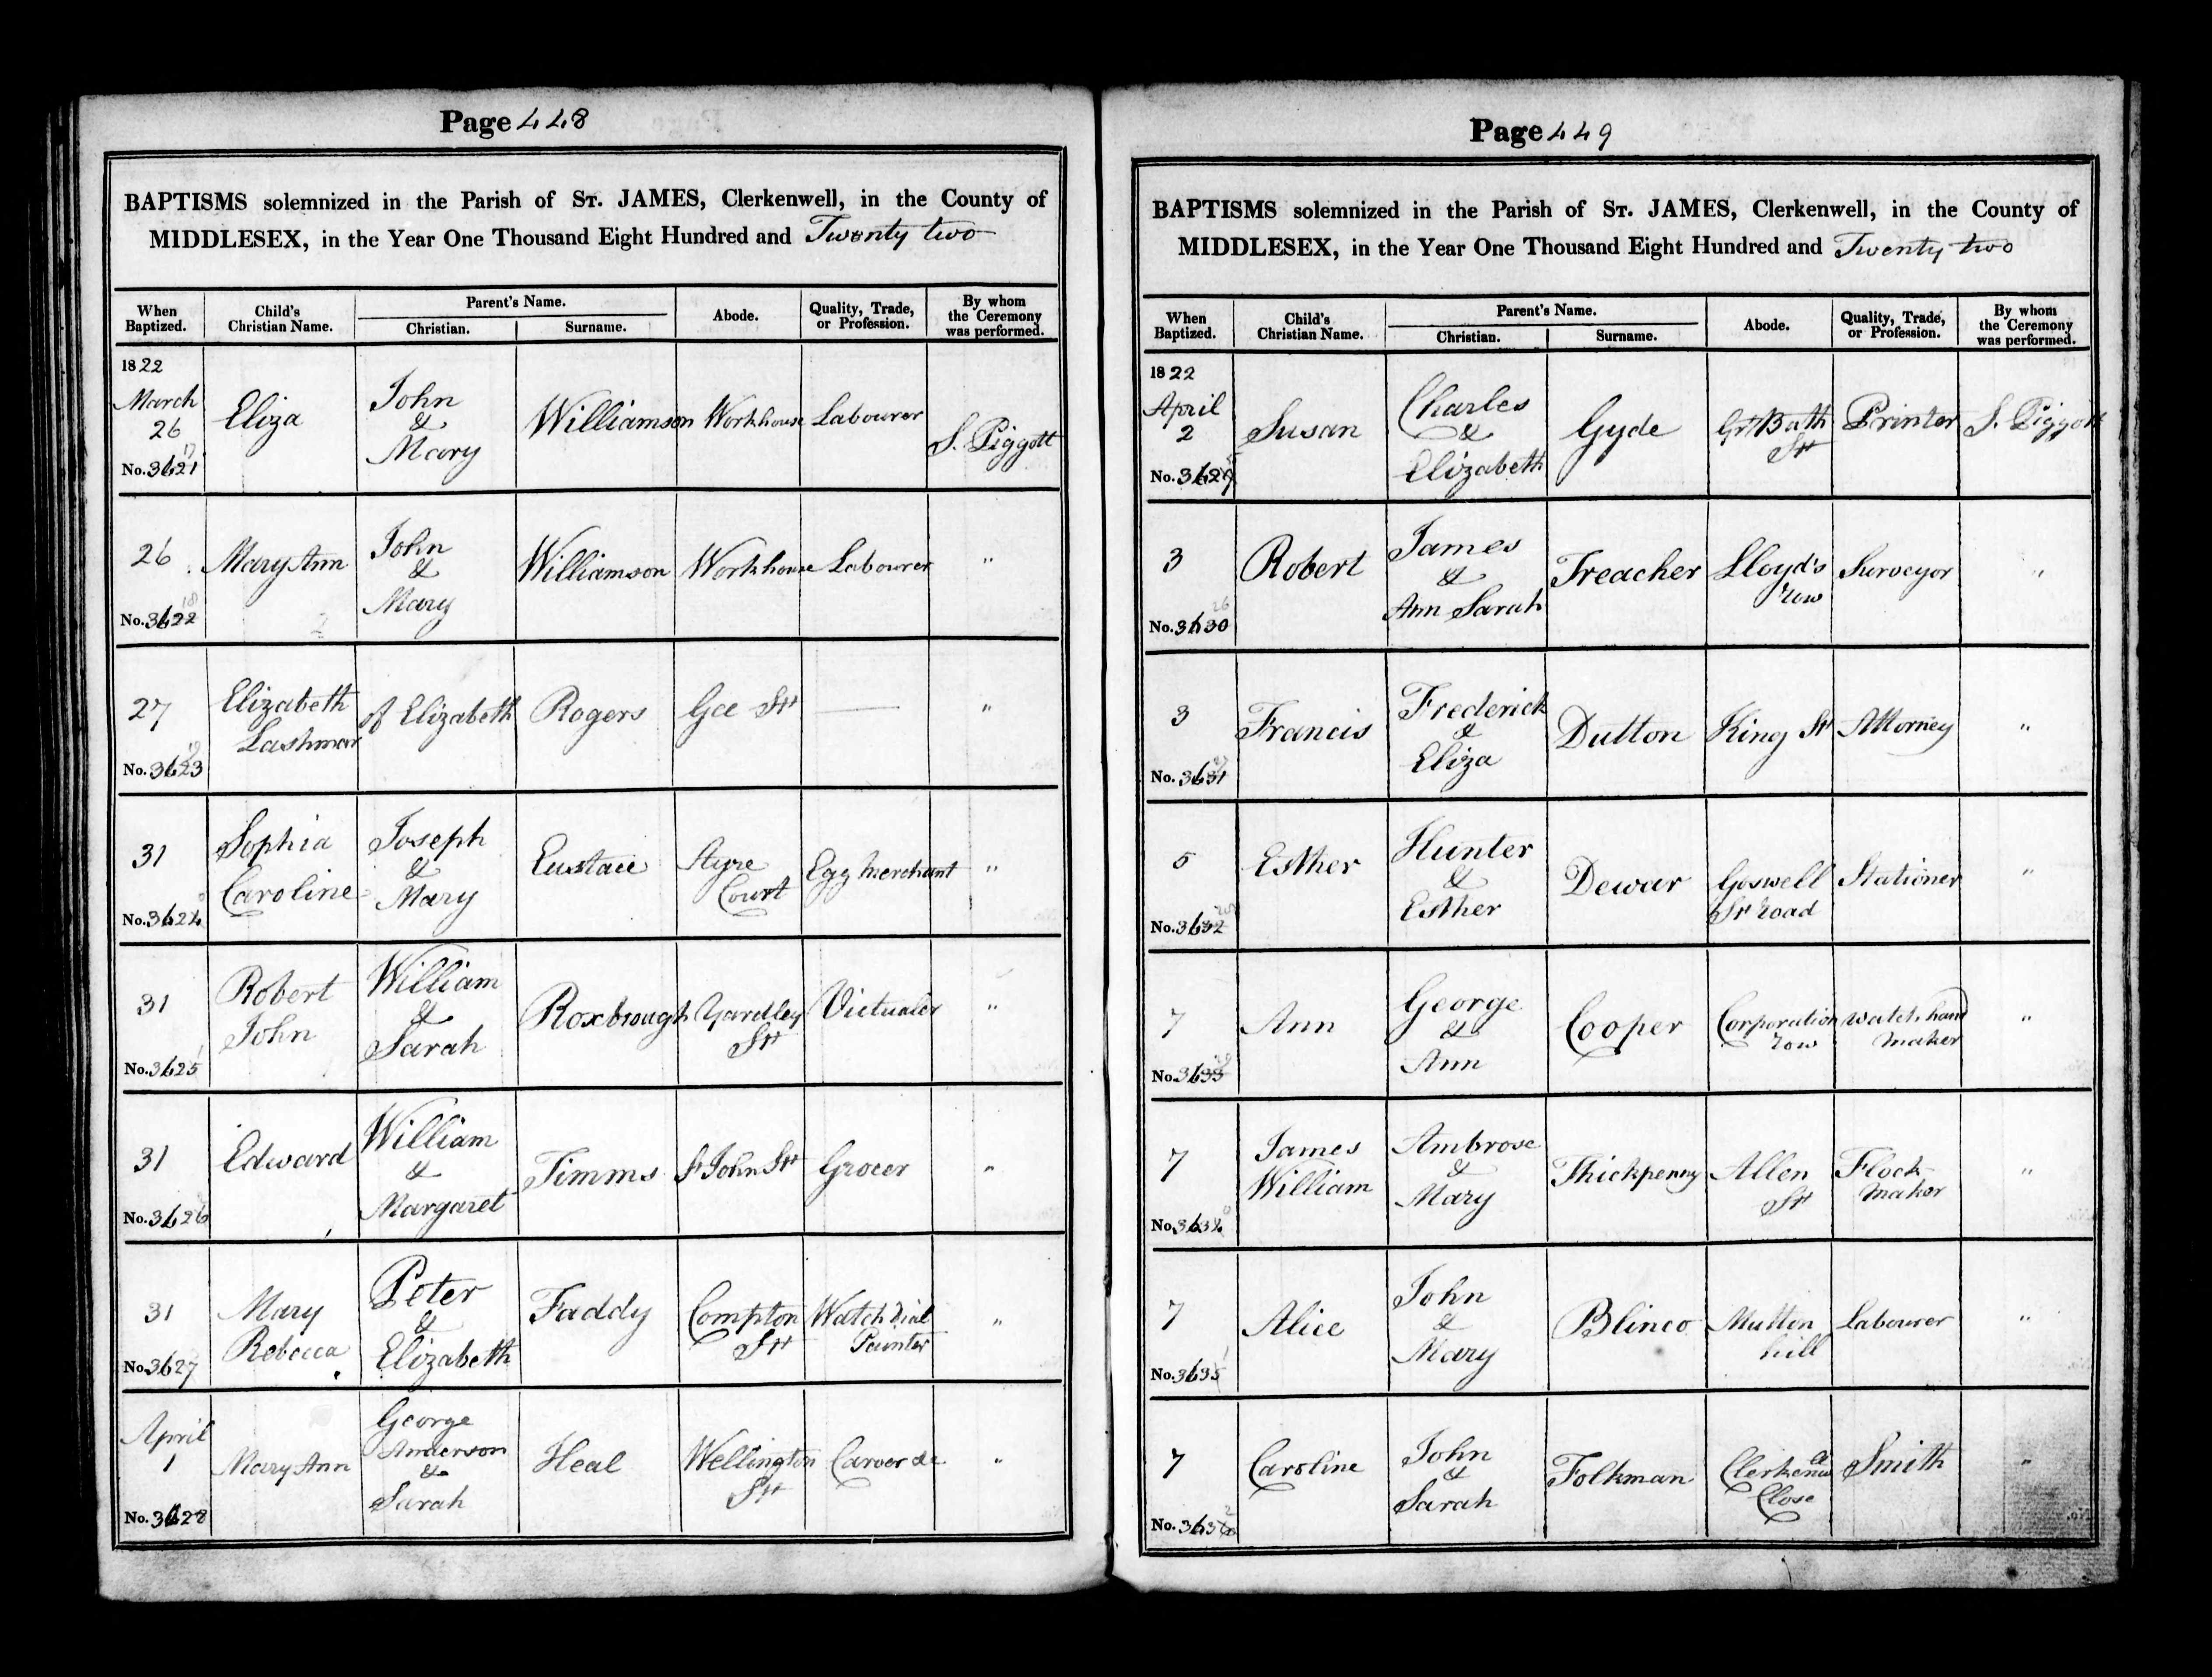 Page 448
BAPTISMS solemnized in the Parish of ST. JAMES, Clerkenwell, in the County of
MIDDLESEX, in the Year One Thousand Eight Hundred and Twenty two
When Baptized. Child's Christian Name. Parent's Name. Christian. Surname. Abode. Quality, Trade, or Profession. By whom the Ceremony was performed.
1822
March 26 Eliza John & Mary Williamson Workhouse Labourer S. Piggott
No. 3621
26 Mary Ann John & Mary Williamson Workhouse Labourer "
No. 3622
27 Elizabeth Lashmar of Elizabeth Rogers Gee St —— "
No. 3623
31 Sophia Caroline Joseph & Mary Eustace Court Egg Merchant "
No. 3624
31 Robert John William & Sarah Roxbrough Yardley St Victualer "
No. 3625
31 Edward William & Margaret Timms St John St Grocer "
No. 3626
31 Mary Rebecca Peter & Elizabeth Faddy Compton St Watch Dial Painter "
No. 3627
April 1 Mary Ann George Anderson & Sarah Heal Wellington St Carver &c "
No. 3628
Page 449
BAPTISMS solemnized in the Parish of ST. JAMES, Clerkenwell, in the County of
MIDDLESEX, in the Year One Thousand Eight Hundred and Twenty two
When Baptized. Child's Christian Name. Parent's Name. Christian. Surname. Abode. Quality, Trade, or Profession. By whom the Ceremony was performed.
1822
April 2 Susan Charles & Elizabeth Gyde Grt Bath St Printer S. Piggott
No. 3629
3 Robert James & Ann Sarah Treacher Lloyd's row Surveyor "
No. 3630
3 Francis Frederick & Eliza Dutton King St Attorney "
No. 3631
5 Esther Hunter & Esther Dewar Goswell St road Stationer "
No. 3632
7 Ann George & Ann Cooper Corporation row Watch hand maker "
No. 3633
7 James William Ambrose & Mary Thickpenny Allen St Flock maker "
No. 3634
7 Alice John & Mary Blinco Mutton hill Labourer "
No. 3635
7 Caroline John & Sarah Folkman Clerkenwell Close Smith "
No. 3636